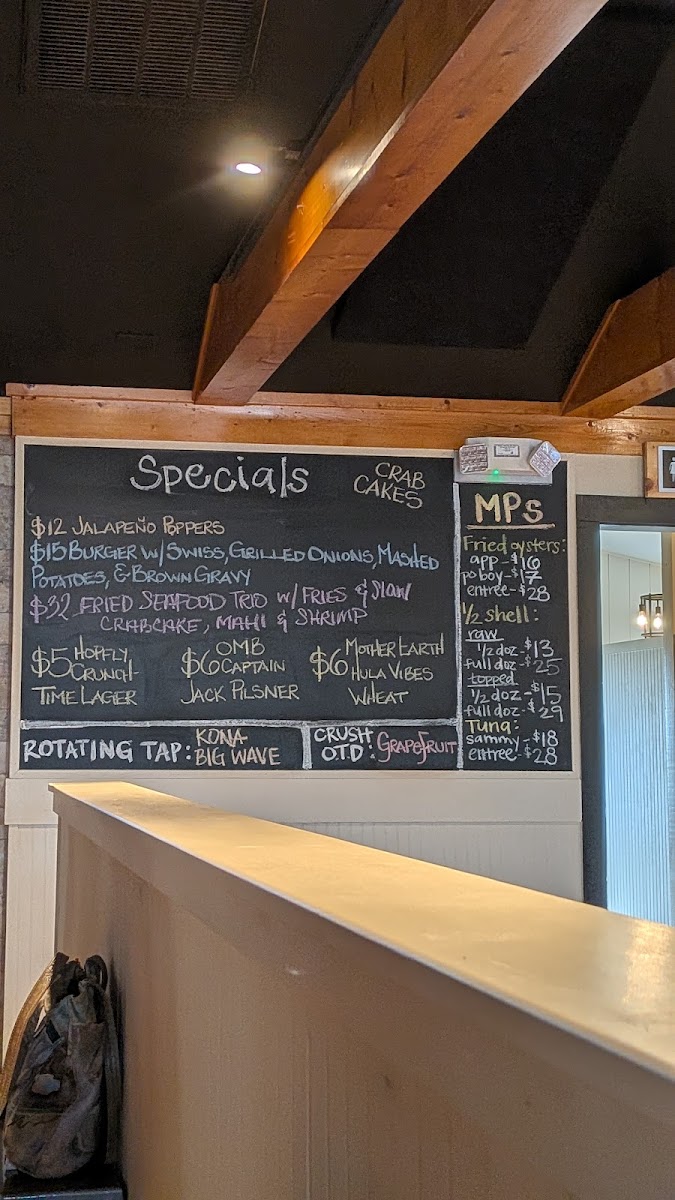 Specials
CRAB
CAKES
$12 JALAPEÑO POPPERS
$15 BURGER W/ SWISS, GRILLED ONIONS, MASHED
POTATOES, & BROWN GRAVY
$32 FRIED SEAFOOD TRIO W/ FRIES & SLAW
CRABCAKE, MAHI & SHRIMP
$5 HOPFLY
CRUNCH-
TIME LAGER
$6 OMB
CAPTAIN
JACK PILSNER
$6 MOTHER EARTH
HULA VIBES
WHEAT
ROTATING TAP: KONA-
BIG WAVE
CRUSH
O.T.D: GRAPEFRUIT
MPs
Fried oysters:
app-$16
po boy-$17
entree-$28
1/2 shell:
raw
1/2 doz-$13
full doz-$25
topped
1/2 doz-$15
full doz-$29
Tuna:
sammy-$18
entree-$28